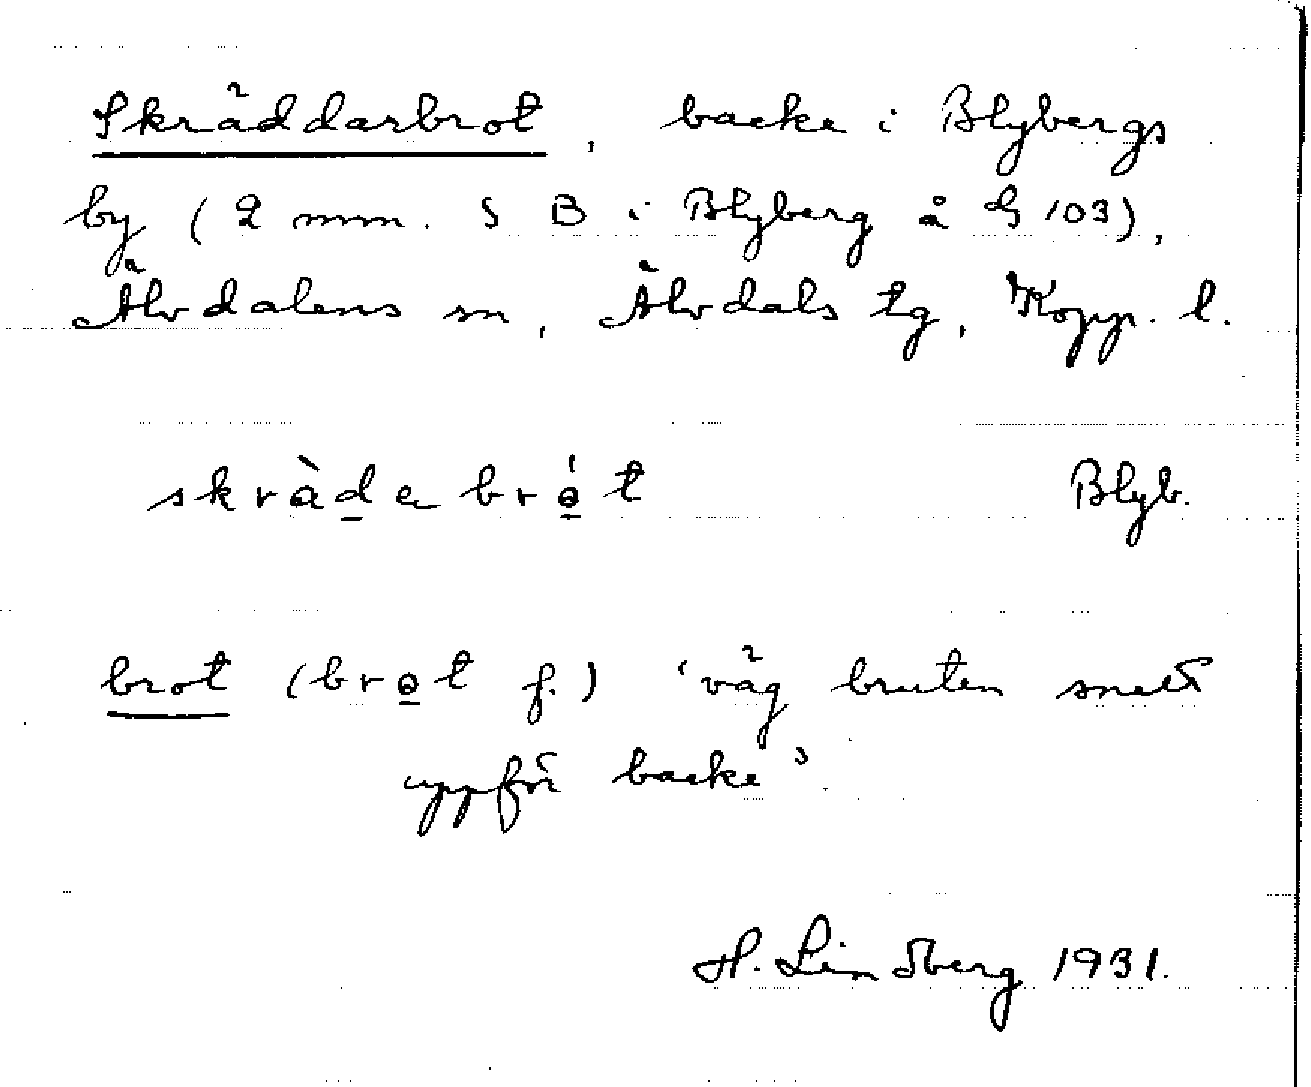 Skräddarbrot, backe i Blybergs
by (2 mm. S B i Blyberg å G 103),
Älvdalens sn, Älvdals tg, Kopp. l.
skrὰdabrό̱t Blyb.
brot (bro̱t f.) 'väg bruten snett
uppför backe'
H. Lindberg 1931.